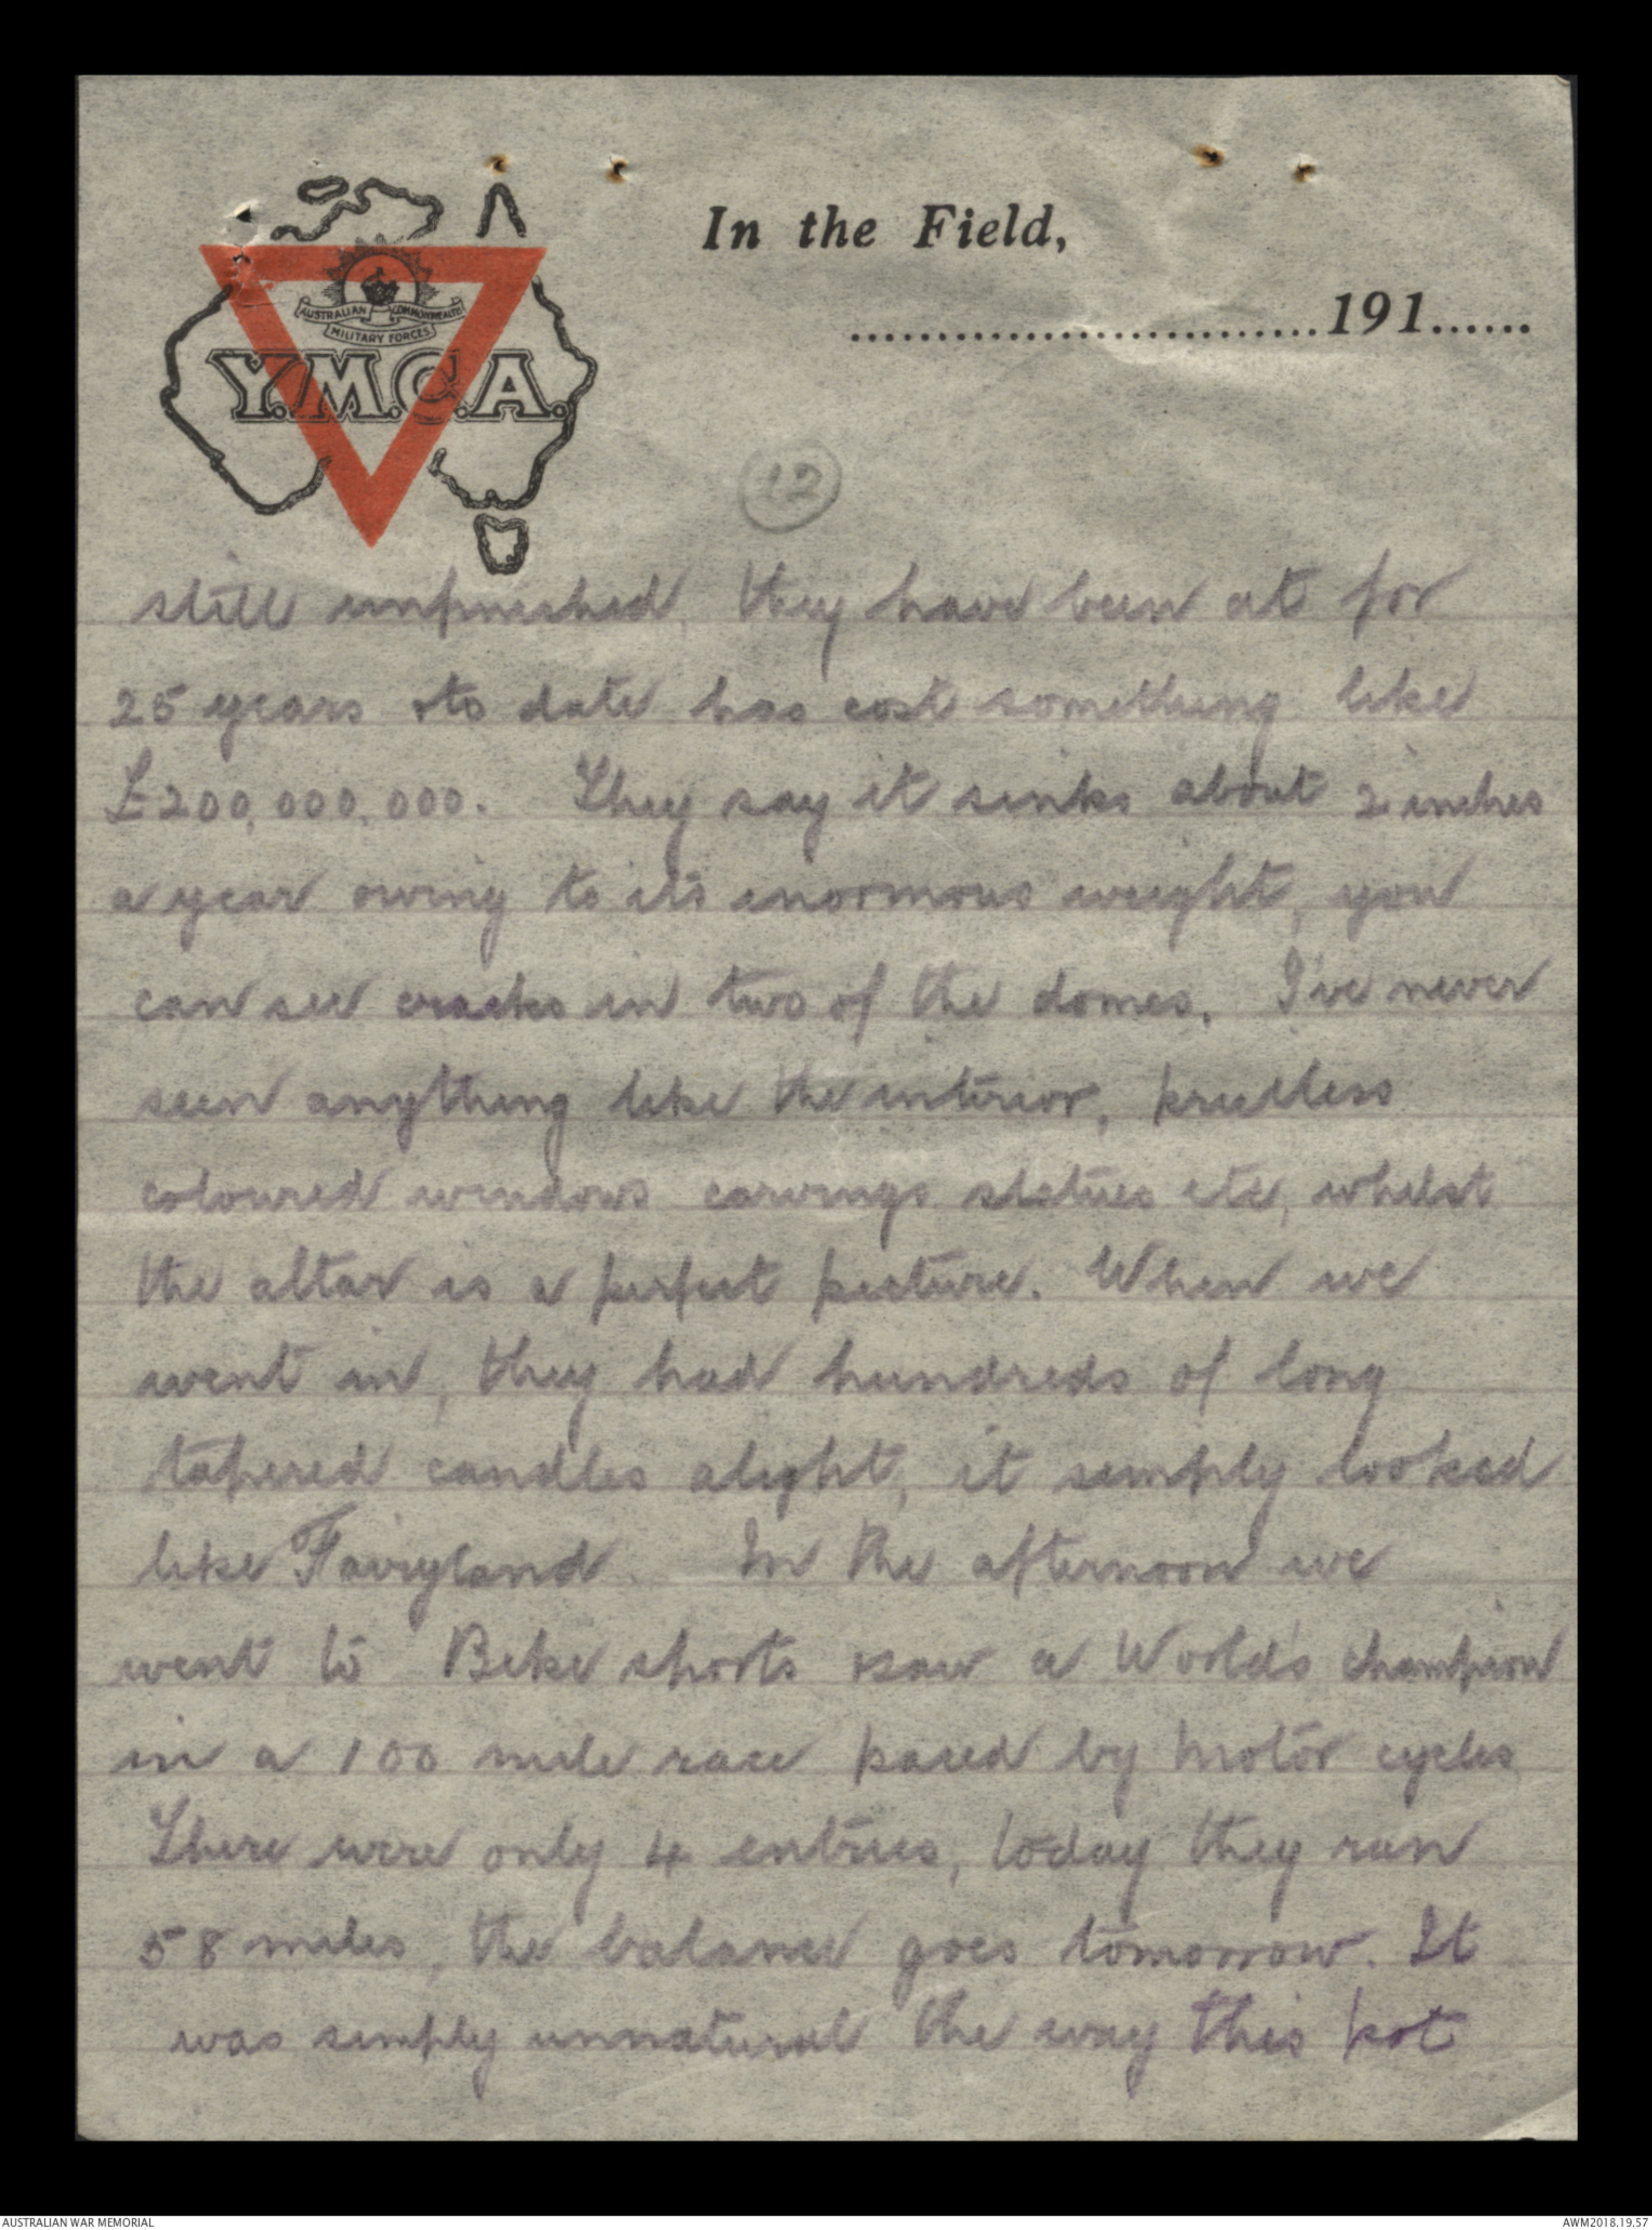 In the Field,
AUSTRALIAN COMMONWEALTH
MILITARY FORCES
..............................191......
Y.M.C.A.
12
still unfinished, they have been at for
25 years & to date has cost something like
£200,000,000. They say it sinks about 2 inches
a year owing to it's enormous weight, you
can see cracks in two of the domes. I've never
seen anything like the interior, priceless
coloured windows carvings statues etc, whilst
the altar is a perfect picture. When we
went in, they had hundreds of long
tapered candles alight, it simply looked
like Fairyland. In the afternoon we
went to Bike sports & saw a World's champion
in a 100 mile race paced by Motor cycles
There were only 4 entries, today they ran
58 miles, the balance goes tomorrow. It
was simply unnatural the way this pot
AUSTRALIAN WAR MEMORIAL
AWM2018.19.57